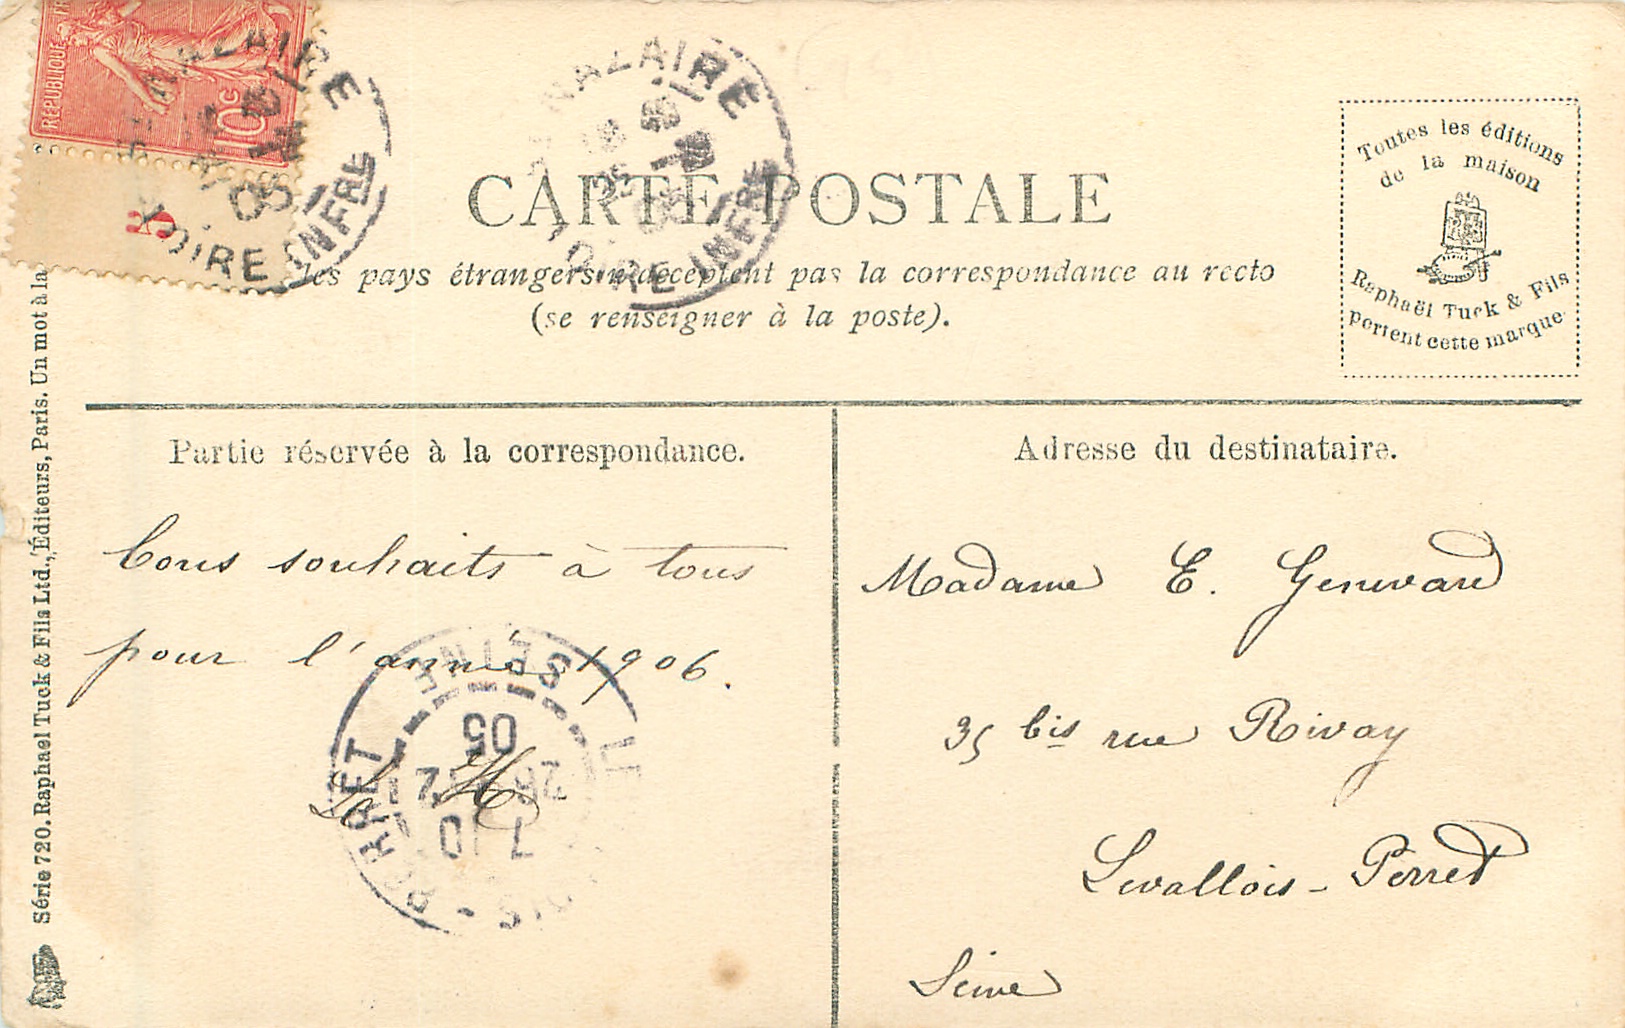 REPUBLIQUE
10c
5
NAZAIRE
LOIRE INFRE
05
NAZAIRE
INFRE
CARTE POSTALE
les pays étrangers n'acceptent pas la correspondance au recto
(se renseigner à la poste).
Toutes les éditions
de la maison
Raphaël Tuck & Fils
portent cette marque
Partie réservée à la correspondance.
Bons souhaits à tous
pour l'année 1906.
SEINE
PERRET
05
7 10
Adresse du destinataire.
Madame E. Genevard
35 bis rue Rivay
Levallois - Perret
Seine
Série 720. Raphael Tuck & Fils Ltd., Éditeurs, Paris. Un mot à la